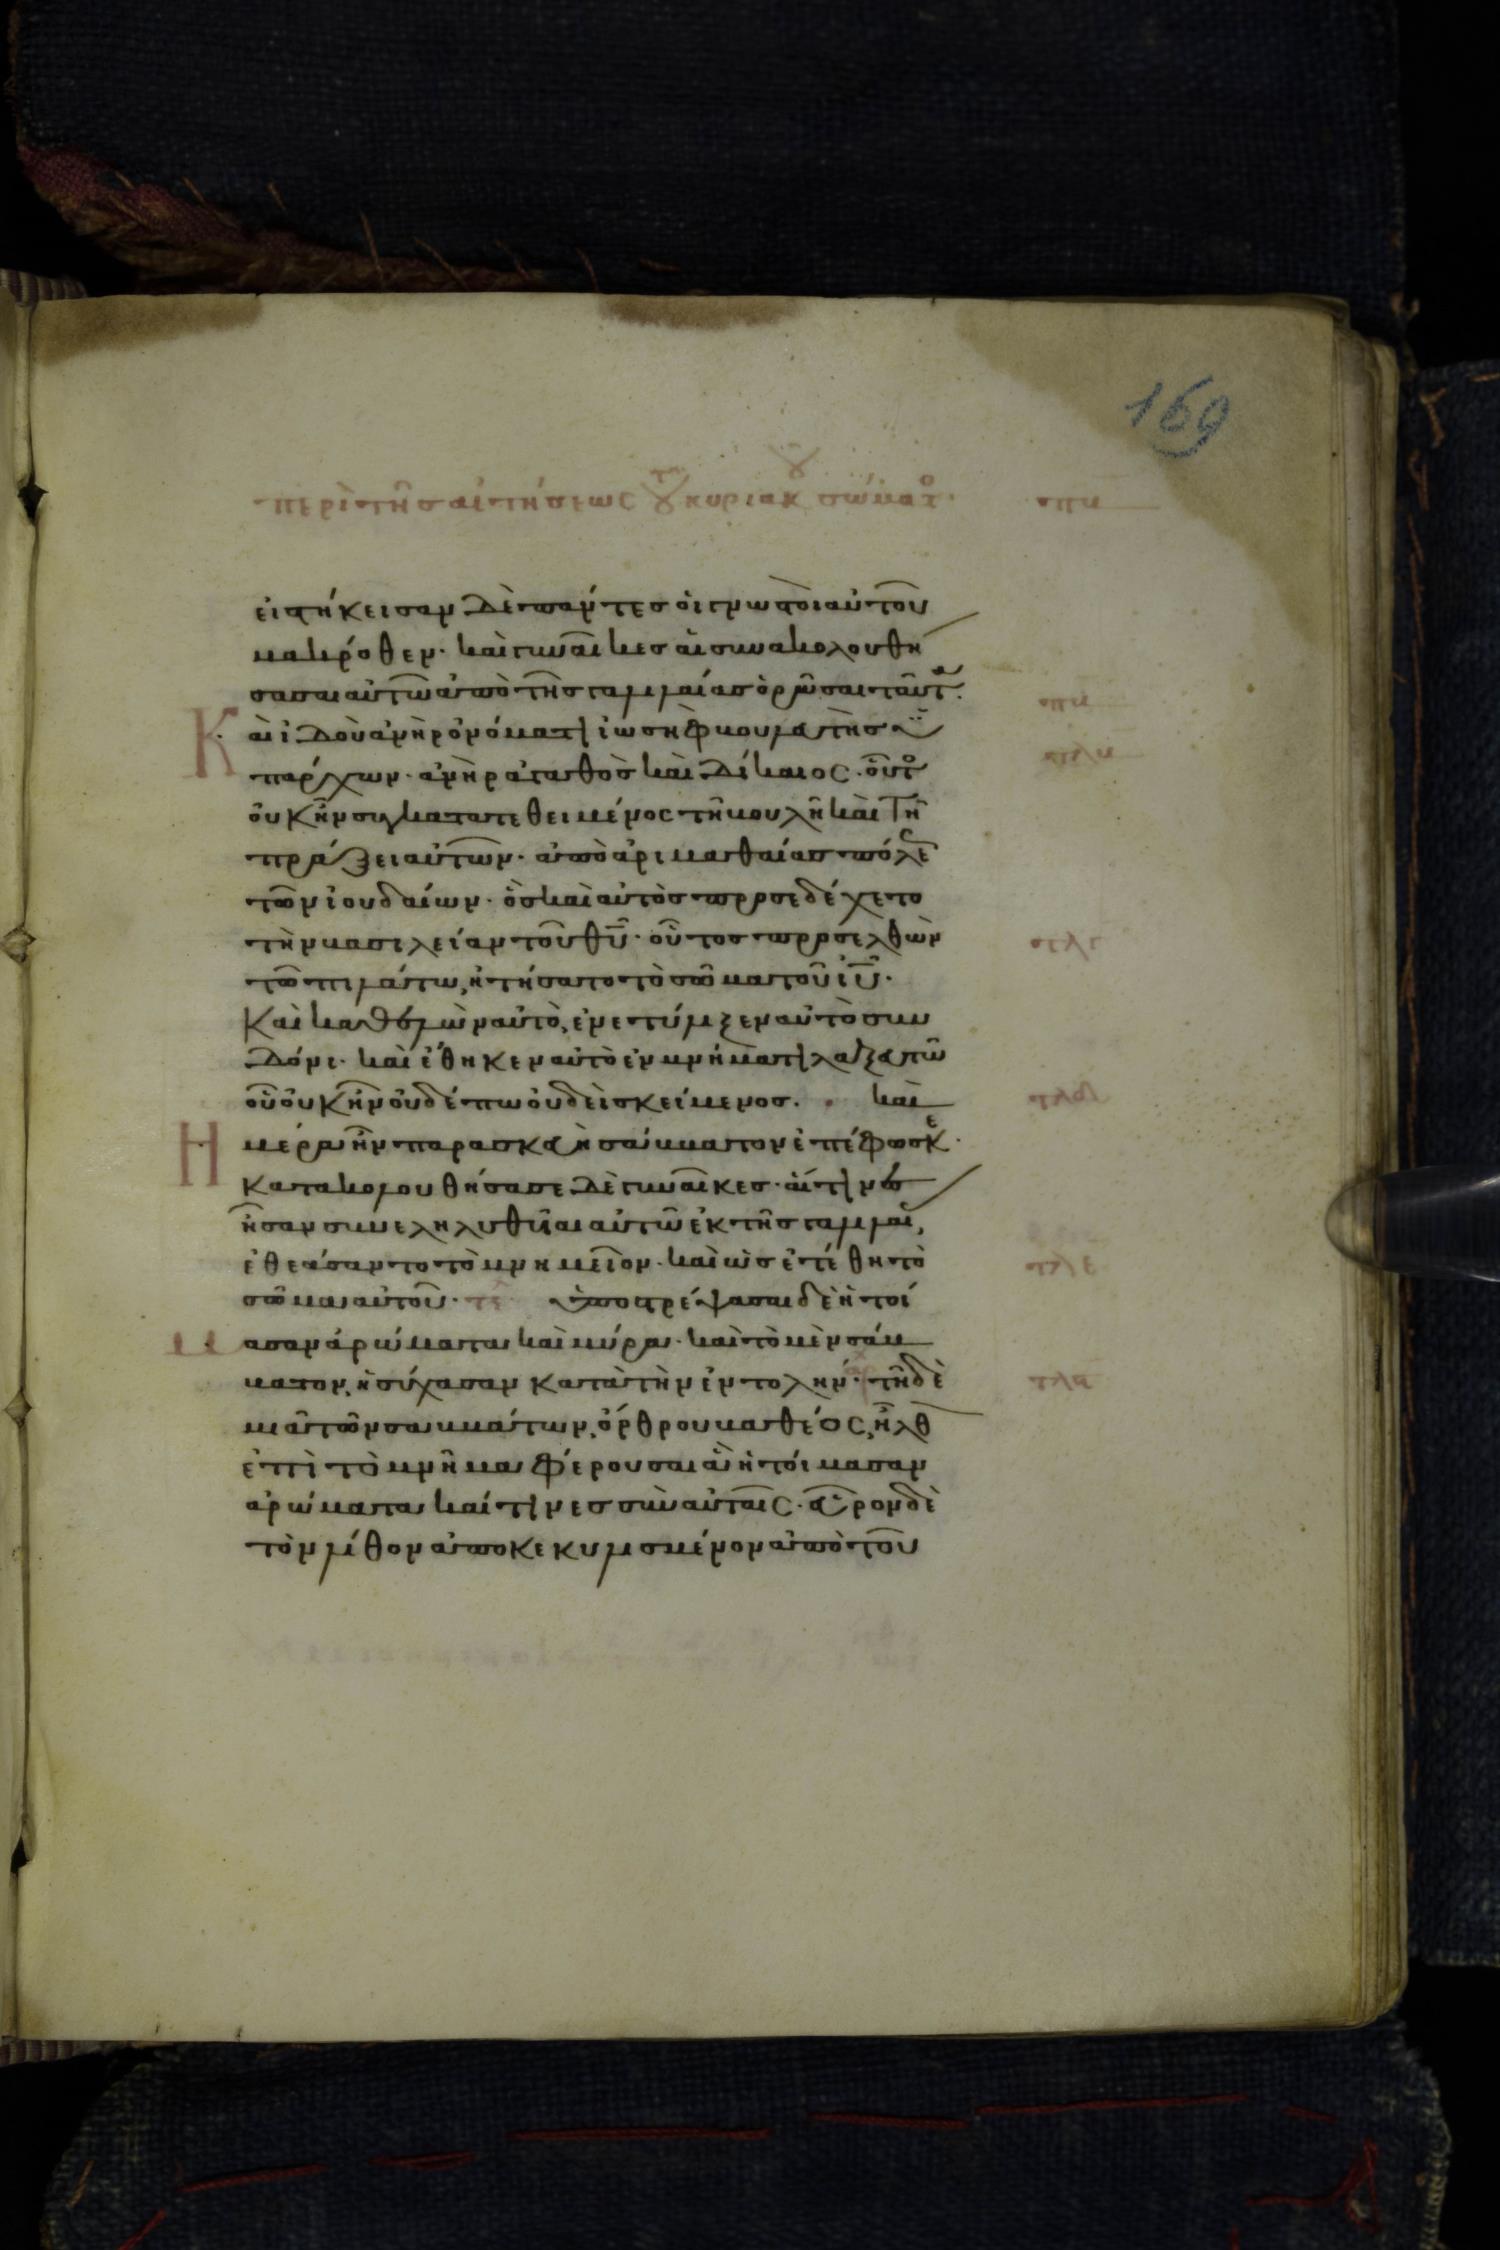 169
περὶ τῆς αἰτήσεως τοῦ κυριακοῦ σώματο·
εἱστήκεισαν δὲ πάντες οἱ γνωστοὶ αὐτοῦ
μακρόθεν· καὶ γυναῖκες αἱ συνακολουθή
σασαι αὐτῶ ἀπὸ τῆς γαλιλαίας ὁρῶσαι ταῦτα.
Κ
αὶ ἰδοὺ ἀνὴρ ὀνόματι ἰωσὴφ βουλευτὴς ὑ
πάρχων· ἀνὴρ ἀγαθὸς καὶ δίκαιος· οὗτο
οὐκ ἦν συγκατατεθειμένος τῆ βουλῆ καὶ τῆ
πράξει αὐτῶν· ἀπὸ ἀριμαθαίας πόλεως
τῶν ἰουδαίων· ὃς καὶ αὐτὸς προσεδέχετο
τὴν βασιλείαν τοῦ θυ· οὗτος προσελθὼν
τῶ πιλάτω, ἠτήσατο τὸ σῶμα τοῦ ιυ.
Καὶ καθελὼν αὐτὸ, ἐνετύλιξεν αὐτὸ σιν
δόνι· καὶ ἔθηκεν αὐτὸ ἐν μνήματι λαξευτῶ
οὗ οὐκ ἦν οὐδέπω οὐδεὶς κείμενος. καὶ
Η
μέρα ἦν παρασκευὴ σάββατον ἐπέφωσκε·
Κατακολουθήσασαι δὲ γυναῖκες· αἵτινες
ἦσαν συνεληλυθῖαι αὐτῶ ἐκ τῆς γαλιλαί,
ἐθεάσαντο τὸ μνημεῖον· καὶ ὡς ἐτέθη τὸ
σῶμα αὐτοῦ· τε ὑποστρέψασαι δὲ ἡτοί
μ
ασαν ἀρώματα καὶ μύρα· καὶ τὸ μὲν σάβ
βατον, ἡσύχασαν κατὰ τὴν ἐντολήν· τῆ δὲ
μιᾶ τῶν σαββάτων, ὄρθρου βαθέος, ἦλθ
ἐπὶ τὸ μνῆμα φέρουσαι ἃ ἡτοίμασαν
ἀρώματα καί τινες σὺν αὐταῖς· εὗρον δὲ
τὸν λίθον ἀποκεκυλισμένον ἀπὸ τοῦ